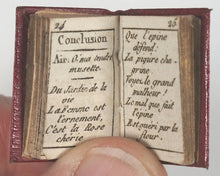 24
Conclusion
Air: O ma tendre
musette.
Du Jardin de la
vie
La Femme est
l'ornement,
C'est la Rose
cherie
25
Que l'epine
défend:
La piqure cha
grine
Voyez le grand
malheur!
Le mal que fait
l'epine
Est guéri par la
fleur.